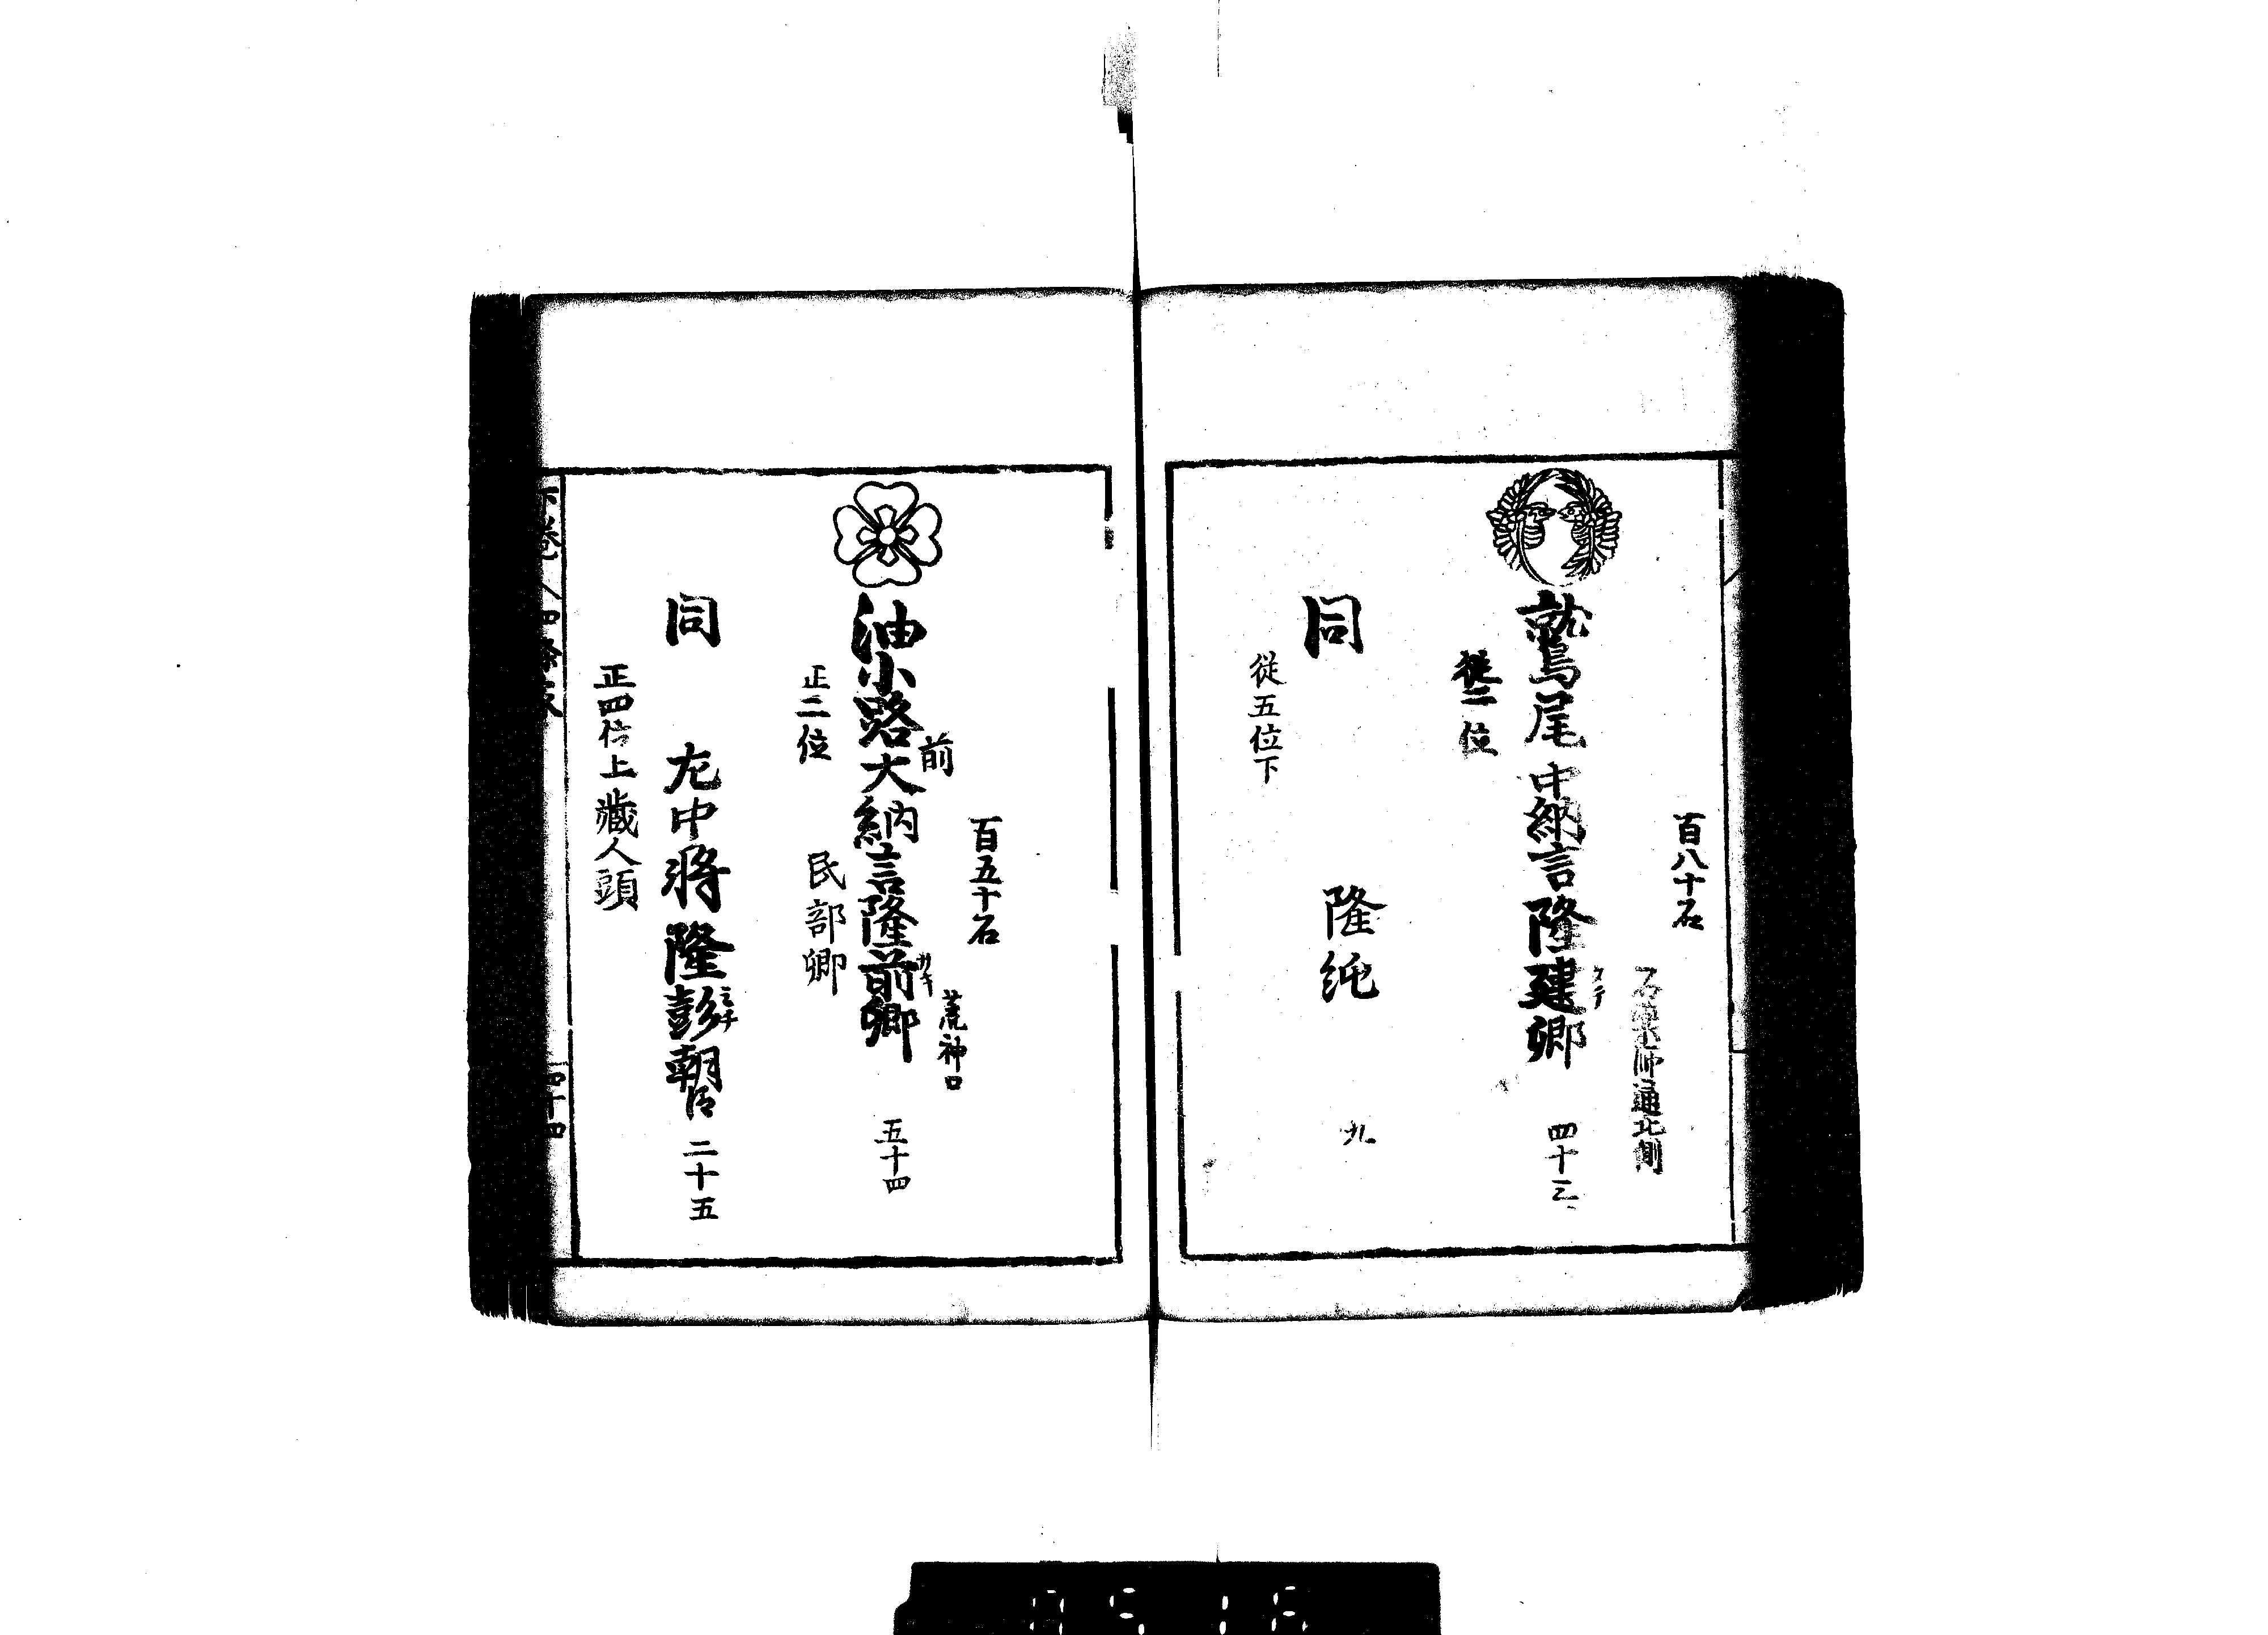 百八十石
石薬師通北側
鷲尾中納言隆建卿 四十三
タテ
従二位
同 隆純 九
従五位下
百五十石
荒神口
前
油小路大納言隆前卿 五十四
サキ
正二位 民部卿
同 左中将隆彭朝臣 二十五
ミチ
正四位上蔵人頭
下巻 四條家
四十四